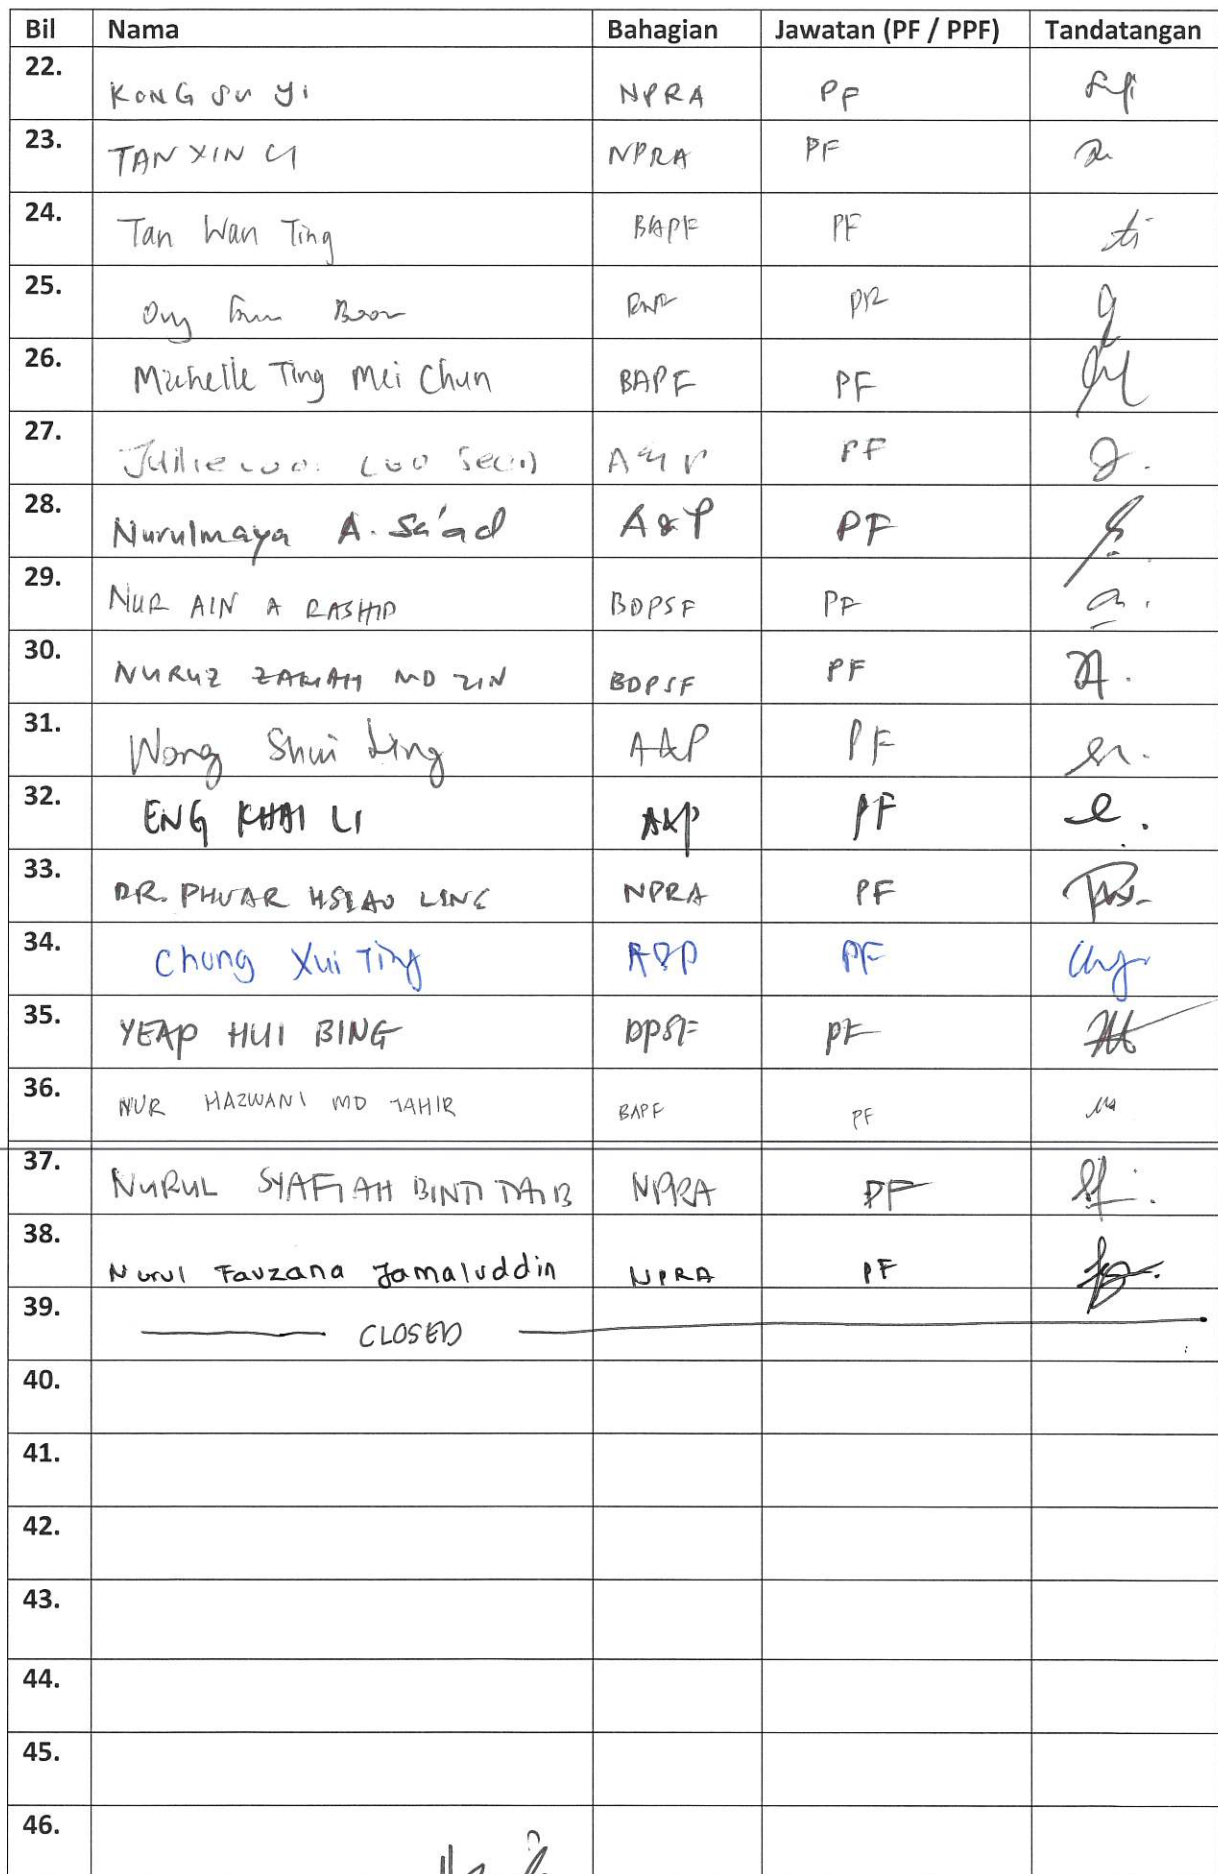 Bil Nama Bahagian Jawatan (PF / PPF) Tandatangan
22. KONG SU YI NPRA PF
23. TAN XIN CI NPRA PF
24. Tan Wan Ting BAPF PF
25. Boon
26. Michelle Ting Mei Chun BAPF PF
27. PF
28. Nurulmaya A. Sa'ad A&P PF
29. NUR AIN A RASHID BDPSF PF
30. NURUZ ZAKIAH MD ZIN BDPSF PF
31. Wong Shui Ling A&P PF
32. ENG KHAI LI A&P PF
33. DR. PHUAR HSIAO LING NPRA PF
34. Chung Xui Ting A&P PF
35. YEAP HUI BING DPSF PF
36. NUR HAZWANI MD TAHIR BAPF PF
37. NURUL SYAFIAH BINTI TAIB NPRA PF
38. Nurul Fauzana Jamaluddin NPRA PF
39. CLOSED
40.
41.
42.
43.
44.
45.
46.